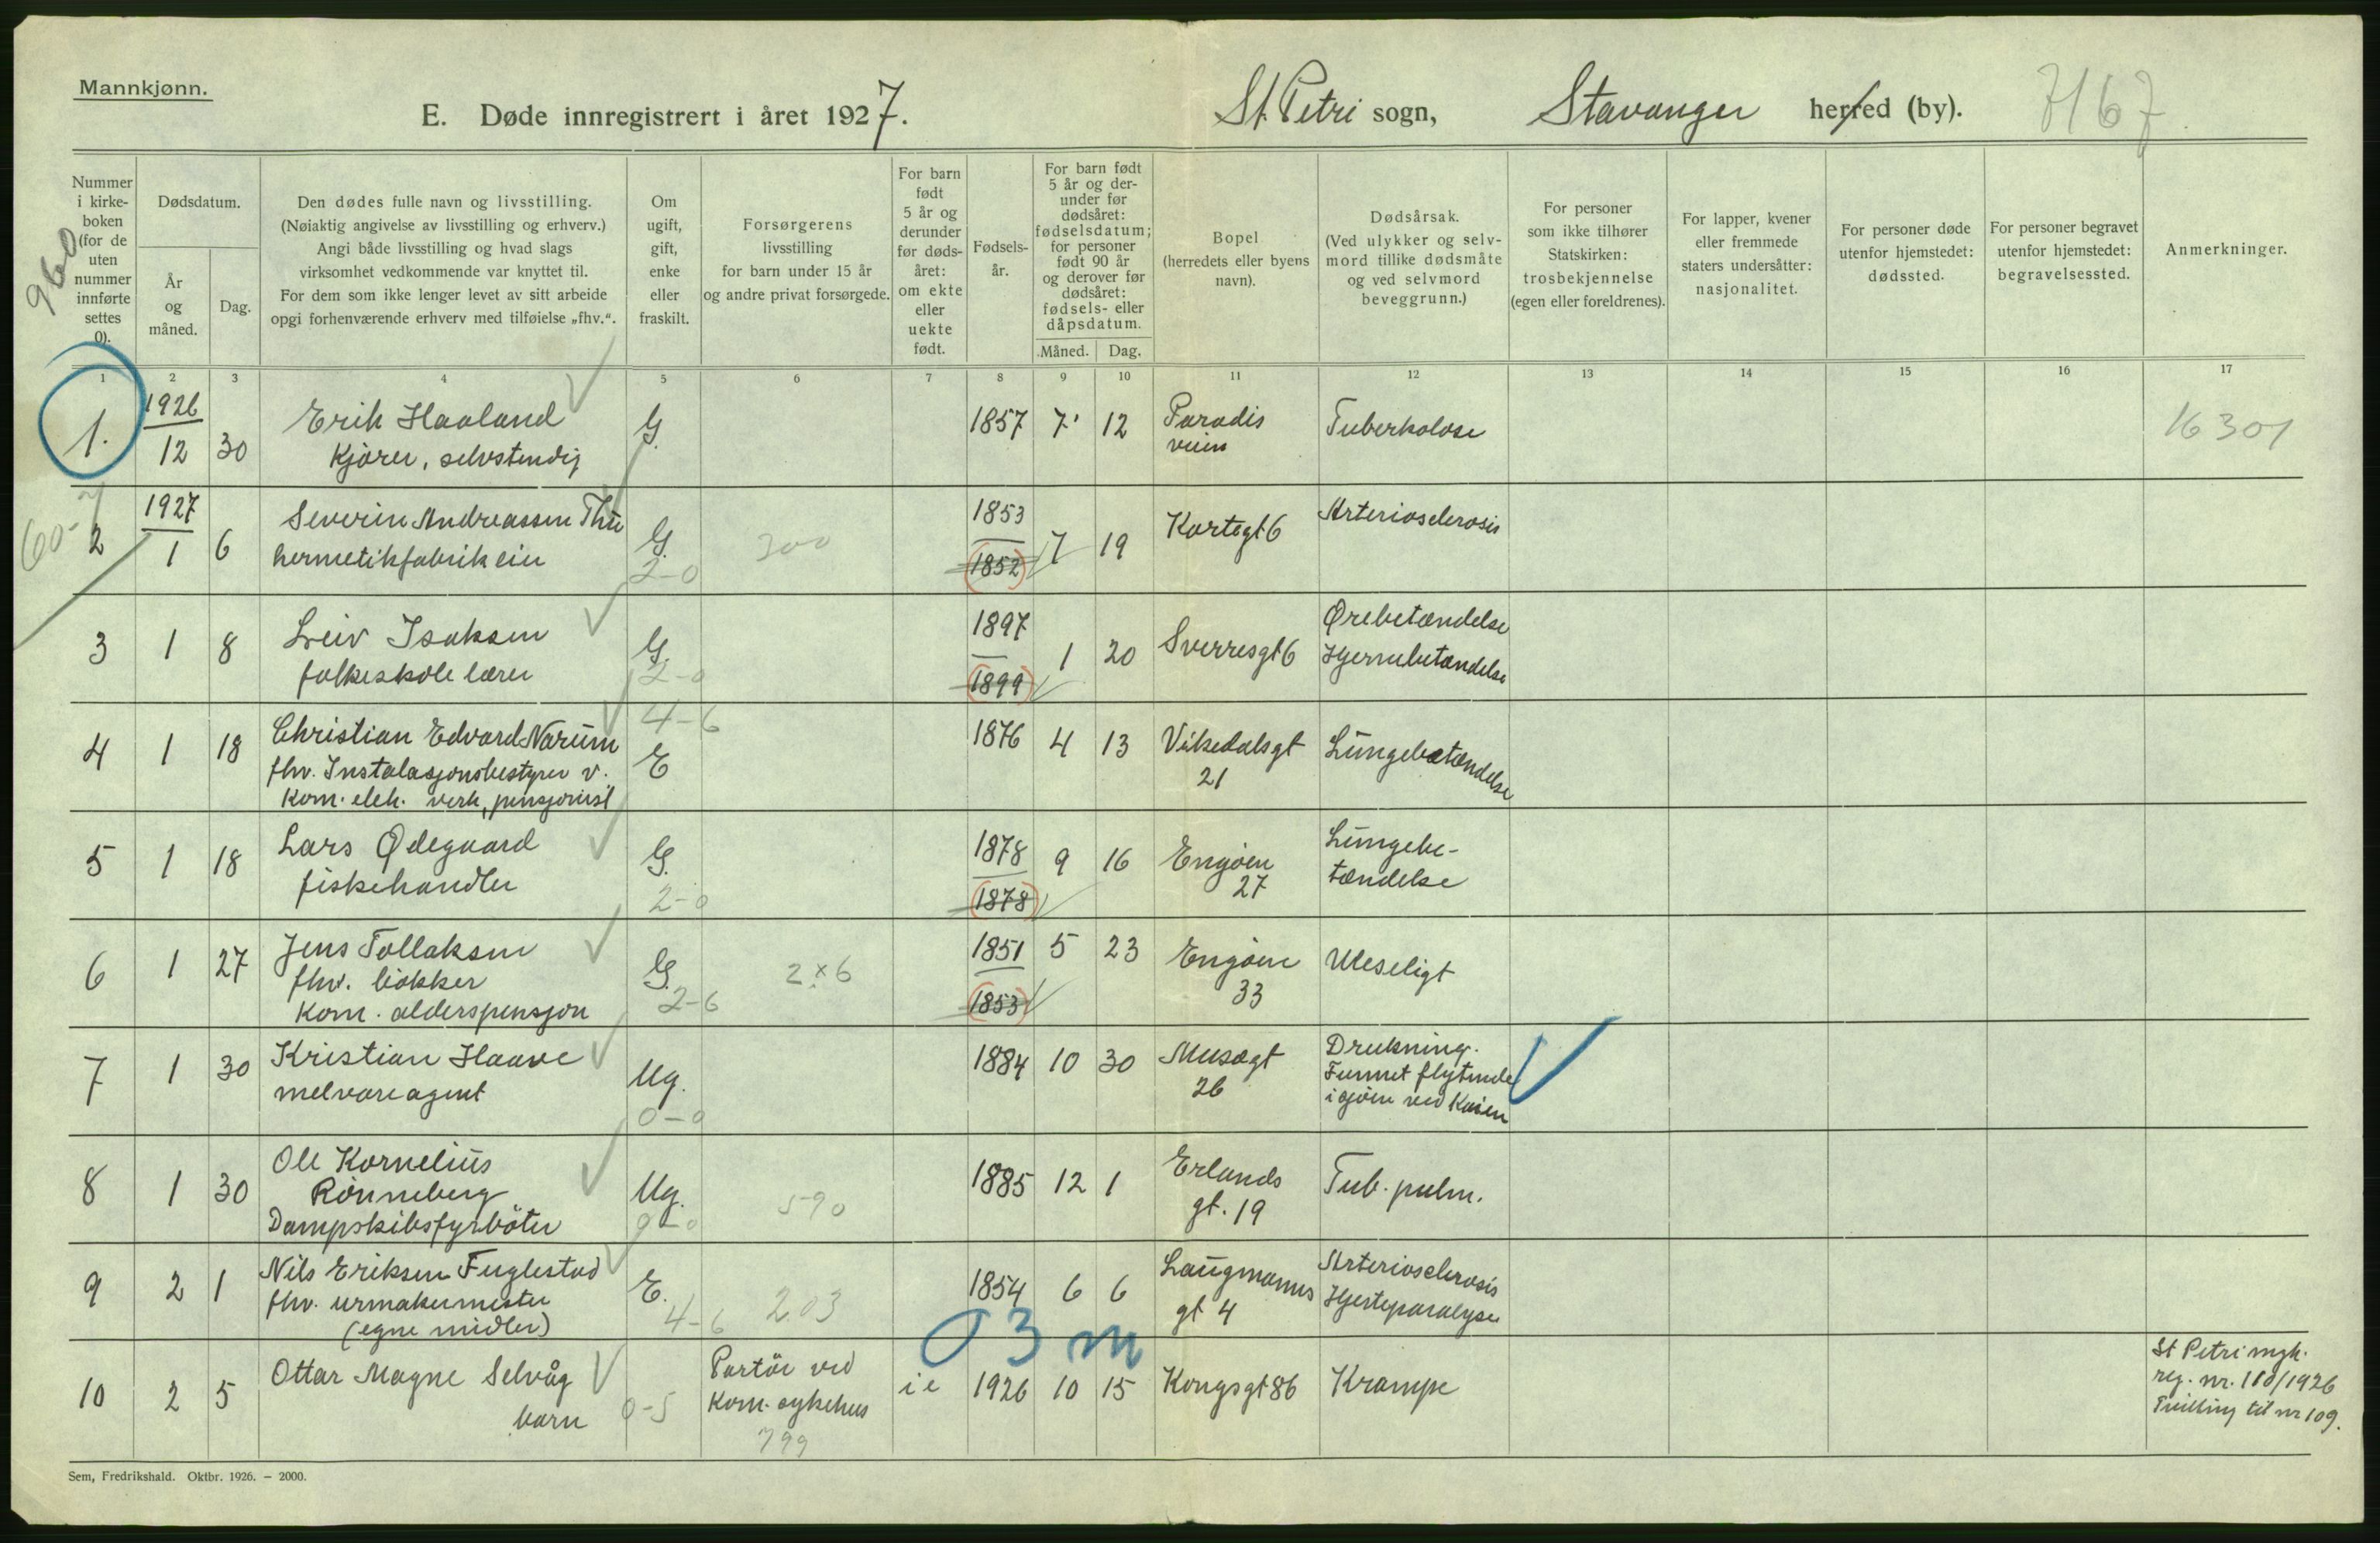 Mannkjønn.
E. Døde innregistrert i året 1927.
St. Petri sogn, Stavanger herred (by). 7167
960
Nummer i kirke-boken (for de uten nummer innførte settes 0).
Dødsdatum.
År og måned.
Dag.
Den dødes fulle navn og livsstilling.
(Nøiaktig angivelse av livsstilling og erhverv.)
Angi både livsstilling og hvad slags
virksomhet vedkommende var knyttet til.
For dem som ikke lenger levet av sitt arbeide
opgi forhenværende erhverv med tilføielse „fhv.“.
Om ugift, gift, enke eller fraskilt.
Forsørgerens
livsstilling
for barn under 15 år
og andre privat forsørgede.
For barn født 5 år og derunder før døds-året: om ekte eller uekte født.
Fødsels-år.
For barn født 5 år og der-under før dødsåret: fødselsdatum; for personer født 90 år og derover før dødsåret: fødsels- eller dåpsdatum.
Måned. Dag.
Bopel
(herredets eller byens navn).
Dødsårsak.
(Ved ulykker og selv-mord tillike dødsmåte og ved selvmord beveggrunn.)
For personer som ikke tilhører Statskirken: trosbekjennelse (egen eller foreldrenes).
For lapper, kvener eller fremmede staters undersåtter: nasjonalitet.
For personer døde utenfor hjemstedet: dødssted.
For personer begravet utenfor hjemstedet: begravelsessted.
Anmerkninger.
1 2 3 4 5 6 7 8 9 10 11 12 13 14 15 16 17
1. 1926 12 30 Erik Haaland G. 1857 7 12 Paradis Tuberkolose 16301
Kjører, selvstendig veien
60-7
2 1927 1 6 Severin Andreassen Thu G. 300 1853 7 19 Kortegt 6 Arteriosclerosis
hermetikfabrikeier 2-0 1852
3 1 8 Leiv Isaksen G 1897 1 20 Sverresgt 6 Ørebetændelse
folkeskole lærer 2-0 1899 Hjernebetændelse
4 1 18 Christian Edvard Narum 4-6 E 1876 4 13 Vikedalsgt Lungebetændelse
fhv. Instalasjonsbestyrer v. 21
Kom. elek. verk, pensjonist
5 1 18 Lars Ødegaard G. 1878 9 16 Engøen Lungebe-
fiskehandler 2-0 1878 27 tændelse
6 1 27 Jens Tollaksen G. 2x6 1851 5 23 Engøen Uleseligt
fhv. bøkker 2-6 1853 33
Kom. alderspensjon
7 1 30 Kristian Haave Ug. 1884 10 30 Musegt Drukning.
melvareagent 0-0 26 Funnet flytende
i sjøen ved Kaien
8 1 30 Ole Kornelius Ug. 590 1885 12 1 Erlands Tub. pulm.
Rønneberg 0-0 gt. 19
Dampskibsfyrbøter
9 2 1 Nils Eriksen Fuglestad E. 203 1854 6 6 Laugmanns Arteriosclerosis
fhv. urmakermester 4-6 gt 4 Hjerteparalyse
(egne midler)
03 m
10 2 5 Ottar Magne Selvåg 0-5 Portør ved ie 1926 10 15 Kongsgt 86 Krampe St Petri mgk.
barn Kom. sykehus reg. nr. 110/1926
799 Tvilling til nr 109.
Sem, Fredrikshald. Oktbr. 1926. – 2000.